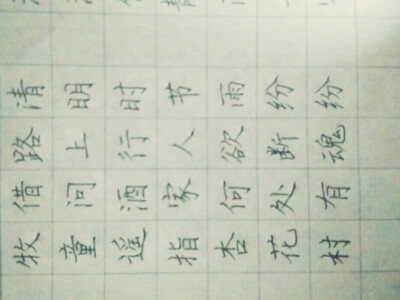 清明时节雨纷纷
路上行人欲断魂
借问酒家何处有
牧童遥指杏花村